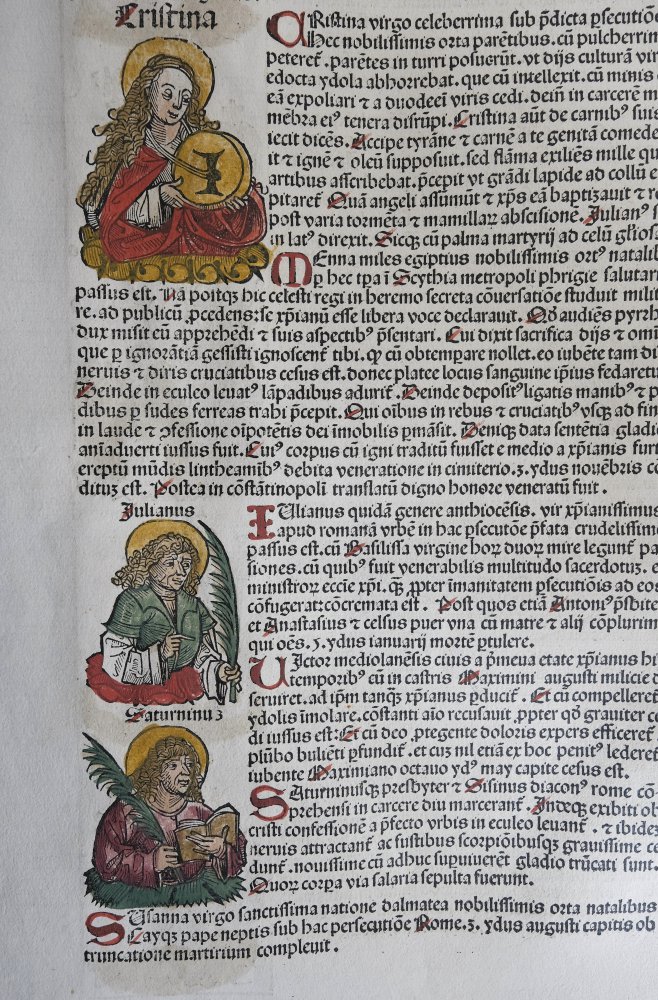 Cristina
CRistina virgo celeberrima sub p̄dicta ꝑsecutiōe
Hec nobilissimis orta parētibus. cū pulcherrim
peteret̄. parētes in turri posuerūt. vt dijs culturā vir
edocta ydola abhorrebat. que cū intellexit. cū minis
eā expoliari ⁊ a duodecī viris cedi. deīn in carcerē m
mēbra eiꝰ tenera disrūpi. Cristina aūt de carnibꝰ suis
iecit dicēs. Accipe tyrāne ⁊ carnē a te genitā comede
it ⁊ ignē ⁊ oleū supposuit. sed flāma exiliēs mille qu
artibus ascribebat. p̄cepit vt grādi lapide ad collū e
pitaret̄. Quā angeli assumūt ⁊ xp̄s eā baptizauit ⁊ re
post varia tormēta ⁊ mamillaꝝ abscisione. Julianꝰ s
in latꝰ direxit. Sicqꝫ cū palma martyrij ad celū gl̄iosa
MEnna miles egiptius nobilissimis ortꝰ natalib
Ꝑ hec tꝑa ī Scythia metropoli phrigie salutari
passus est. Nā postqꝫ hic celesti regi in heremo secreta cōuersatiōe studuit milit
re. ad publicū ꝓcedens: se xp̄ianū esse libera voce declarauit. Qd̄ audiēs pyrrh
dux misit eū apprehēdi ⁊ suis aspectibꝰ p̄sentari. Cui dixit sacrifica dijs ⁊ omī
que ꝑ ignorātiā gessisti ignoscent̄ tibi. Qꝰ cū obtemꝑare nollet. eo iubēte tam di
neruis ⁊ diris cruciatibus cesus est. donec platee locus sanguine ip̄ius fedaretu
Deinde in eculeo leuatꝰ lāpadibus adurit̄. Deinde depositꝰ ligatis manibꝰ ⁊ p
dibus ꝑ sudes ferreas trahi p̄cepit. Qui oībus in rebus ⁊ cruciatibꝰ vsqꝫ ad fin
in laude ⁊ ꝯfessione oīpotētis dei īmobilis ꝑmāsit. Deniqꝫ data sententia gladio
anīaduerti iussus fuit. Cuiꝰ corpus cū igni traditū fuisset e medio a xp̄ianis furt
ereptū mūdis lintheamībꝰ debita veneratione in cimiterio. 3. ydus nouēbris cō
dituꝫ est. Postea in cōstātinopolī translatū digno honore veneratū fuit.
Julianus
IUlianus quidā genere anthiocēsis. vir xp̄ianissimus
apud romanā vrbē in hac ꝑsecutōe p̄fata crudelissime
passus est. cū Basilissa virgine hoꝝ duoꝝ mire legunt̄ pa
siones. cū quibꝰ fuit venerabilis multitudo sacerdotuꝫ. e
ministroꝝ eccīe xp̄i. qꝫ ꝓpter īmanitatem ꝑsecutiōis ad eos
cōfugerat: cōcremata est. Post quos etiā Antoniꝰ p̄sbite
et Anastasius et celsus puer vna cū matre ⁊ alij cōplurim
qui oēs. 5. ydus ianuarij mortē ꝑtulere.
UJctor mediolanēsis ciuis a p̄meua etate xp̄ianus hi
temporibꝰ cū in castris Maximini augusti milicie d
seruiret. ad ip̄m tanqꝫ xp̄ianus ꝑducit̄. Et cū compelleret̄
ydolis īmolare. cōstanti aīo recusauit. ꝓpter qd̄ grauiter ce
di iussus est: Et cū deo ꝓtegente doloris expers efficeret̄
plūbo bulieti ꝑfundit̄. et cuꝫ nil etiā ex hoc penitꝰ lederet̄
iubente Maximiano octauo ydꝰ may capite cesus est.
Saturninuꝫ
SAturninusqꝫ presbyter ⁊ Sisinus diaconꝰ rome cō-
prehensi in carcere diu marcerant̄. Indeqꝫ exibiti ob
cristi confessionē a p̄fecto vrbis in eculeo leuant̄. ⁊ ibideꝫ
neruis attractant̄ ac fustibus scorpiōibusqꝫ grauissime ce
dunt̄. nouissime cū adhuc suꝑuiuerēt gladio trūcati sunt.
Quoꝝ corꝑa via salaria sepulta fuerunt.
SUsanna virgo sanctissima natione dalmatea nobilissimis orta natalibus
Gayqꝫ pape neptis sub hac persecutiōe Rome. 3. ydus augusti capitis ob
truncatione martirium compleuit.